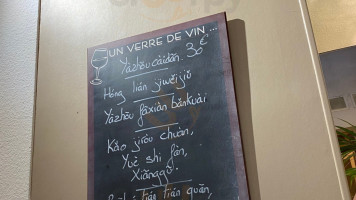 UN VERRE DE VIN ...
Yàzhōu càidān. 30€
Hóng lián jiwěijiǔ
Yàzhōu fāxiàn bǎnkuài
Kǎo jiròu chuàn,
Yuè shi fàn,
Xiānggū.
tián tián quān,